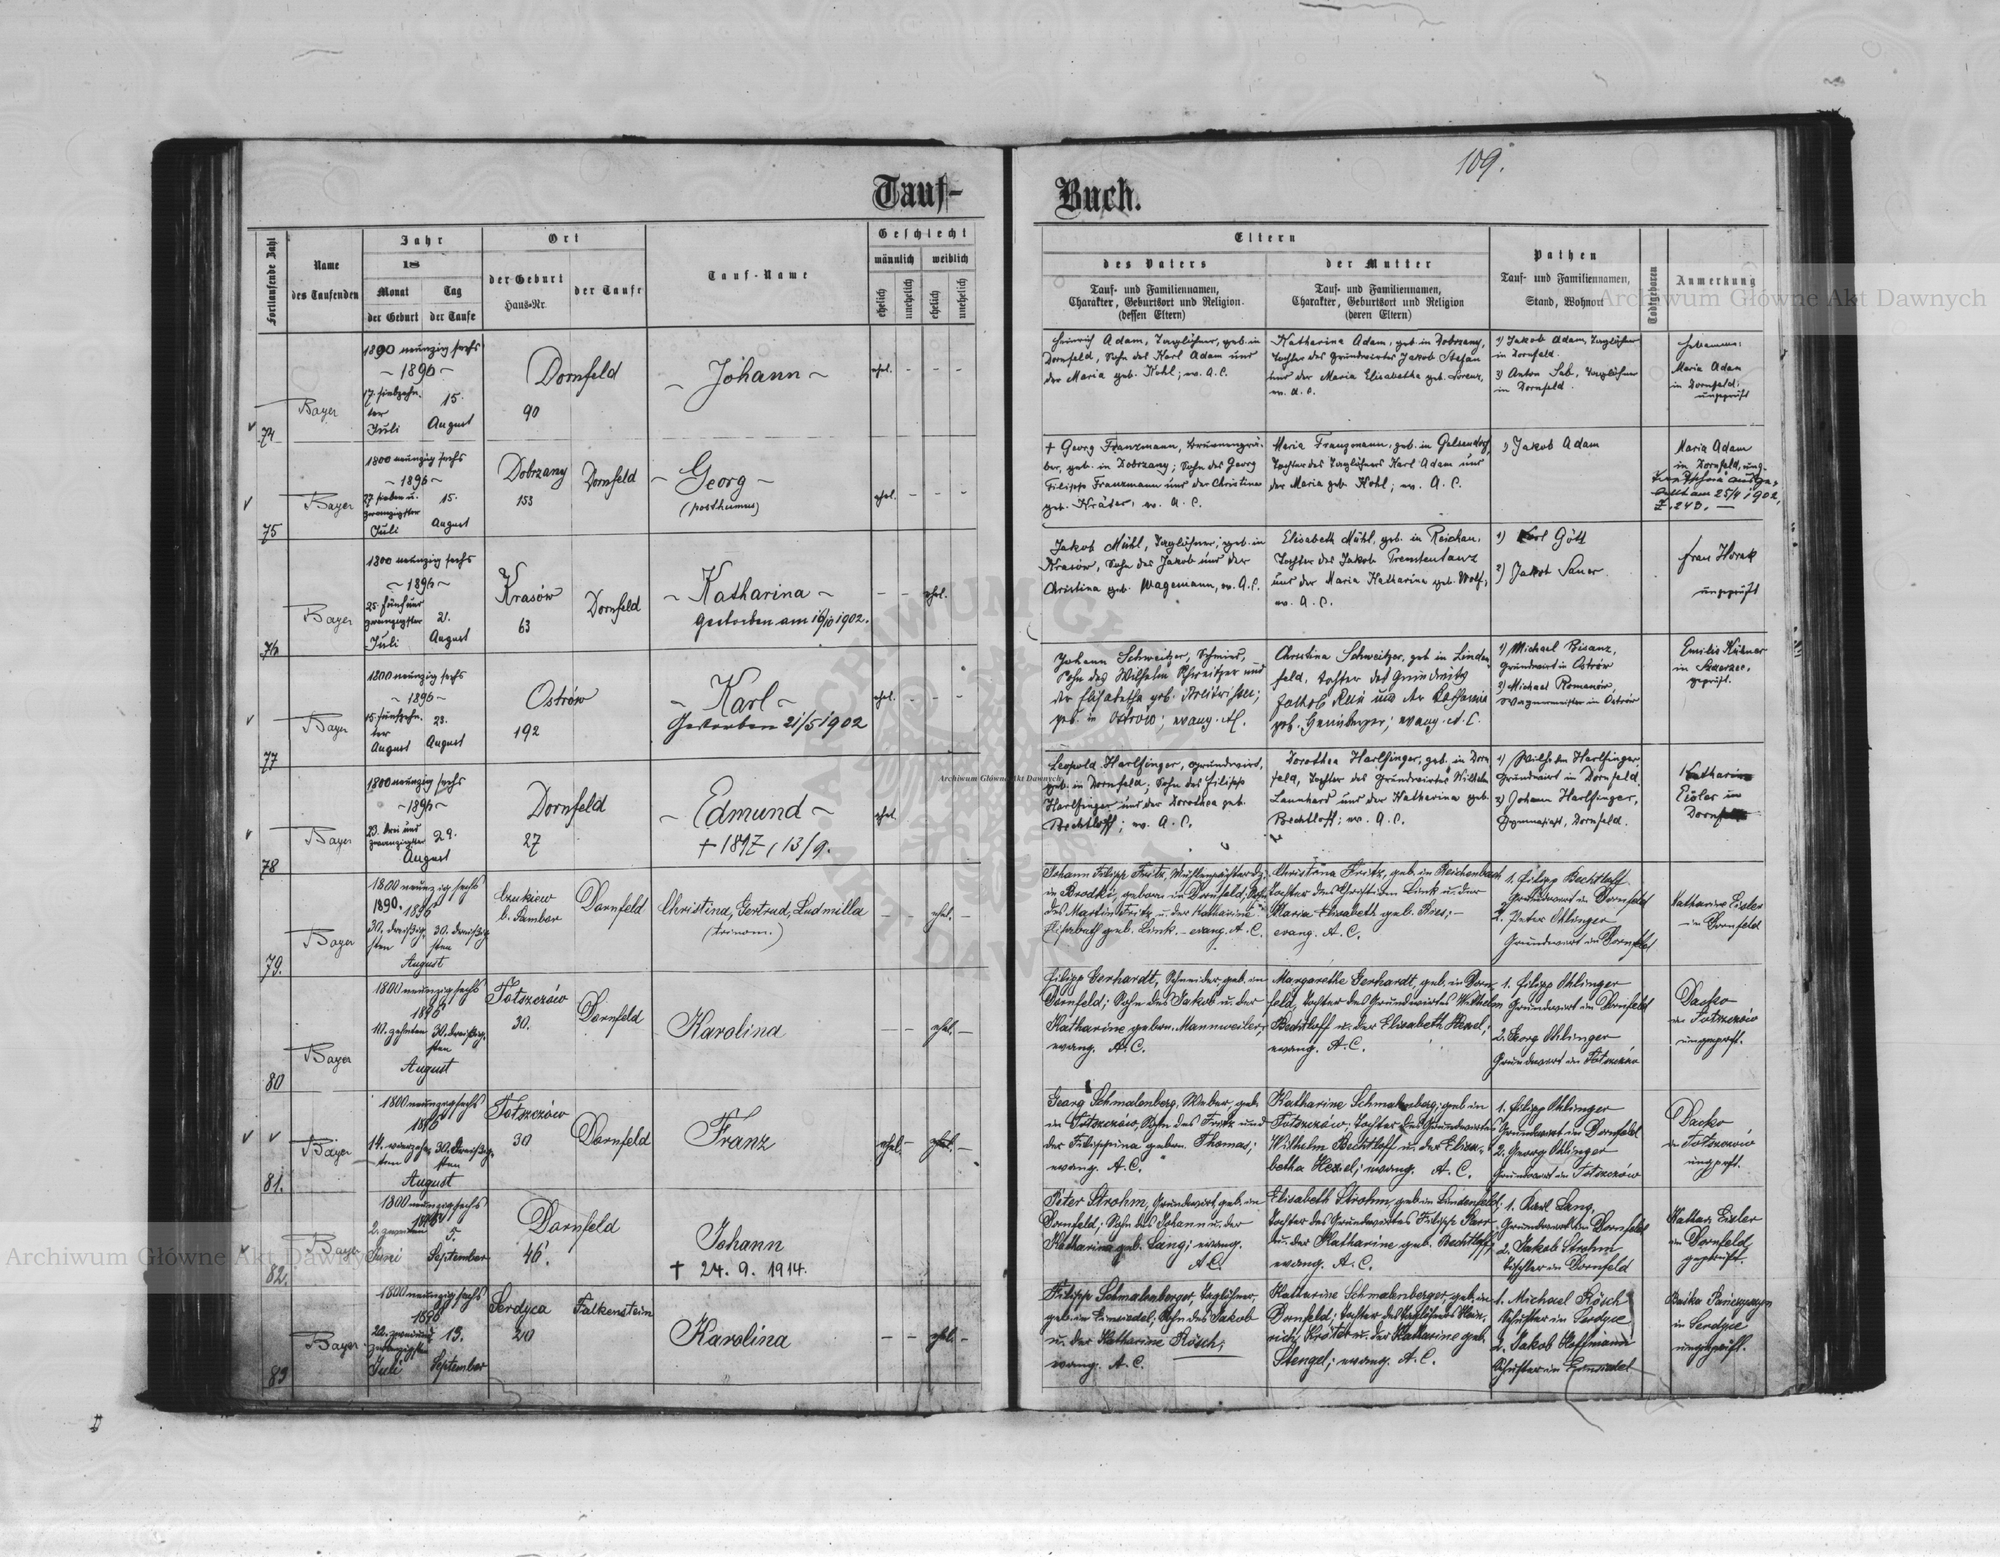 109.
Tauf-
Buch.
Fortlaufende Zahl
Name
des Taufenden
Jahr
18
Monat
der Geburt
Tag
der Taufe
Ort
der Geburt
Haus-Nr.
der Taufe
Tauf-Name
Geschlecht
männlich
weiblich
ehelich
unehelich
ehelich
unehelich
Eltern
des Vaters
Tauf- und Familiennamen,
Charakter, Geburtsort und Religion.
(dessen Eltern)
der Mutter
Tauf- und Familiennamen,
Charakter, Geburtsort und Religion
(deren Eltern)
Pathen
Tauf- und Familiennamen,
Stand, Wohnort
Todtgeboren
Anmerkung
74
Bayer
1890 neunzig sechs
~ 1896 ~
17. siebzehn-
ter
Juli
15.
August
Dornfeld
90
~ Johann ~
ehel. - - -
Heinrich Adam, Taglöhner, geb. in
Dornfeld, Sohn des Karl Adam und
der Maria geb. Kohl; ev. A. C.
Katharina Adam, geb. in Dobrzany,
Tochter des Grundwirtes Jakob Stefan
und der Maria Elisabetha geb. Lorenz,
ev. A. C.
1) Jakob Adam, Taglöhner
in Dornfeld.
2) Anton Sab, Taglöhner
in Dornfeld.
Hebamme:
Maria Adam
in Dornfeld,
ungeprüft
75
Bayer
1800 neunzig sechs
~ 1896 ~
27. sieben u.
zwanzigster
Juli
15.
August
Dobrzany
153
Dornfeld
~ Georg ~
(posthumus)
ehel. - - -
† Georg Franzmann, Brunnengrä-
ber, geb. in Dobrzany; Sohn des Georg
Filipp Franzmann und der Christina
geb. Kräter, ev. A. C.
Maria Franzmann, geb. in Gelsendorf,
Tochter des Taglöhners Karl Adam und
der Maria geb. Kohl; ev. A. C.
1) Jakob Adam
Maria Adam
in Dornfeld, ung.
76
Bayer
1800 neunzig sechs
~ 1896 ~
25. fünf und
zwanzigster
Juli
21.
August
Krasów
63
Dornfeld
~ Katharina ~
Gestorben am 16/10 1902.
- - ehel.
Jakob Mühl, Taglöhner, geb. in
Krasów, Sohn des Jakob und der
Christina geb. Wagemann, ev. A. C.
Elisabeth Mühl, geb. in Reichau,
Tochter des Jakob
und der Maria Katharina geb. Wolf,
ev. A. C.
1) Karl Gött
2) Jakob Sauer
Frau Horak
ungeprüft
77
Bayer
1800 neunzig sechs
~ 1896 ~
15. fünfzehn-
ter
August
23.
August
Ostrów
192
~ Karl ~
Gestorben 21/5 1902
ehel. - - -
Johann Schweitzer, Schmied,
Sohn des Wilhelm Schweitzer und
der Elisabetha geb.
geb. in Ostrów; evang. A.C.
Christina Schweitzer, geb. in Linden-
feld, Tochter des Grundwirts
Jakob und der Katharina
geb. evang. A. C.
1) Michael Bisanz,
Grundwirt in Ostrów
2) Michael Romanów
Wagnermeister in Ostrów
Emilie Kühner
in Szczerzec,
geprüft.
78
Bayer
1800 neunzig sechs
~ 1896 ~
23. drei und
zwanzigster
29.
August
Dornfeld
27
~ Edmund ~
† 1897, 13/9.
ehel.
Leopold Harlfinger, Grundwirt,
geb. in Dornfeld, Sohn des Filipp
Harlfinger und der Dorothea geb.
Bechtloff; ev. A. C.
Dorothea Harlfinger, geb. in Dorn-
feld, Tochter des Grundwirtes Wilhelm
Launhard und der Katharina geb.
Bechtloff; ev. A. C.
1) Wilhelm Harlfinger,
Grundwirt in Dornfeld.
2) Johann Harlfinger,
Dornfeld.
Katharina
Eisler in
Dornfeld
79.
Bayer
1800 neunzig sechs
1890. 1896
30. dreißig-
sten
30. dreißig-
sten
August
b. Sambor
Dornfeld
Christina, Gertrud, Ludmilla
(trinom.)
- - ehel. -
Johann Filipp Fritz, Mühlenpächter
in Brodki, geboren in Dornfeld, Sohn
des Martin Fritz u. der Katharina
Elisabeth geb. Link. - evang. A. C.
Christina Fritz, geb. in Reichenbach
Tochter des Christian Link u. der
Maria Elisabeth geb. Ries; -
evang. A. C.
1. Filipp Bechtloff
Grundwirt in Dornfeld
2. Peter Ohlinger
Grundwirt in Dornfeld
Katharina Eisler
in Dornfeld
80
Bayer
1800 neunzig sechs
1896
10. zehnten
30. dreißig-
sten
August
Tołszczów
30.
Dornfeld
Karolina
- - ehel. -
Filipp Gerhardt, Schneider, geb. in
Dornfeld; Sohn des Jakob u. der
Katharine geboren. Mannweiler;
evang. A. C.
Margarethe Gerhardt, geb. in Dorn-
feld, Tochter des Grundwirtes Wilhelm
Bechtloff u. der Elisabeth Hexel;
evang. A. C.
1. Filipp Ohlinger
Grundwirt in Dornfeld
2. Georg Ohlinger
Grundwirt in Tołszczów
Dacko
in Tołszczów
ungeprft.
81.
Bayer
1800 neunzig sechs
1896
14. vierzehn-
ten
30. dreißig-
sten
August
Tołszczów
30
Dornfeld
Franz
ehel. - ehel. -
Georg Schmalenberg, Weber, geb.
in Tołszczów, Sohn des Fritz und
der Filippina geboren. Thomas;
evang. A. C.
Katharine Schmalenberg; geb. in
Tołszczów, Tochter des Grundwirtes
Wilhelm Bechtloff u. der Elisa-
betha Hexel; evang. A. C.
1. Filipp Ohlinger
Grundwirt in Dornfeld
2. Georg Ohlinger
Grundwirt in Tołszczów
Dacko
in Tołszczów
ungprft.
82.
Bayer
1800 neunzig sechs
1896
2. zweiten
Juni
5.
September
Dornfeld
46.
Johann
† 24. 9. 1914.
Peter Strohm, Grundwirt, geb. in
Dornfeld; Sohn des Johann u. der
Katharina geb. Lang; evang.
A. C.
Elisabeth Strohm, geb. in Lindenfeld;
Tochter des Grundwirtes Filipp
u. der Katharine, geb. Bechtloff;
evang. A. C.
1. Karl Lang,
Grundwirt in Dornfeld
2. Jakob Strohm
Tischler in Dornfeld
Kathar. Eisler
in Dornfeld
geprüft.
83
Bayer
1800 neunzig sechs
1896
22. zweiund
zwanzigsten
Juli
13.
September
Serdyca
20
Falkenstein
Karolina
- - ehel. -
Filipp Schmalenberger, Taglöhner,
geb. in Einsiedel, Sohn des Jakob
u. der Katharine Rösch;
evang. A. C.
Katharine Schmalenberger, geb. in
Dornfeld; Tochter des Taglöhners Hein-
rich Kröter u. der Katharine geb.
Stengel; evang. A. C.
1. Michael Rösch
Schuster in Serdyce
2. Jakob Hoffmann
Schuster in Einsiedel
in Serdyce
ungeprüft.
Archiwum Główne Akt Dawnych
Archiwum Główne Akt Dawnych
Archiwum Główne Akt Dawnych